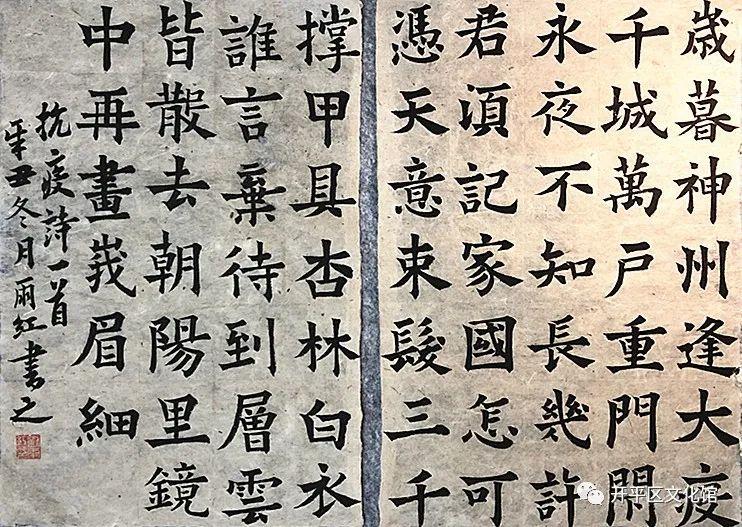 歲暮神州逢大疫
千城萬戶重門閉
永夜不知長幾許
君須記家國怎可
憑天意束髮三千
撑甲具杏林白衣
誰言棄待到層雲
皆散去朝陽里鏡
中再畫峩眉細
抗疫詩一首
辛丑冬月丽红書之
开平区文化馆